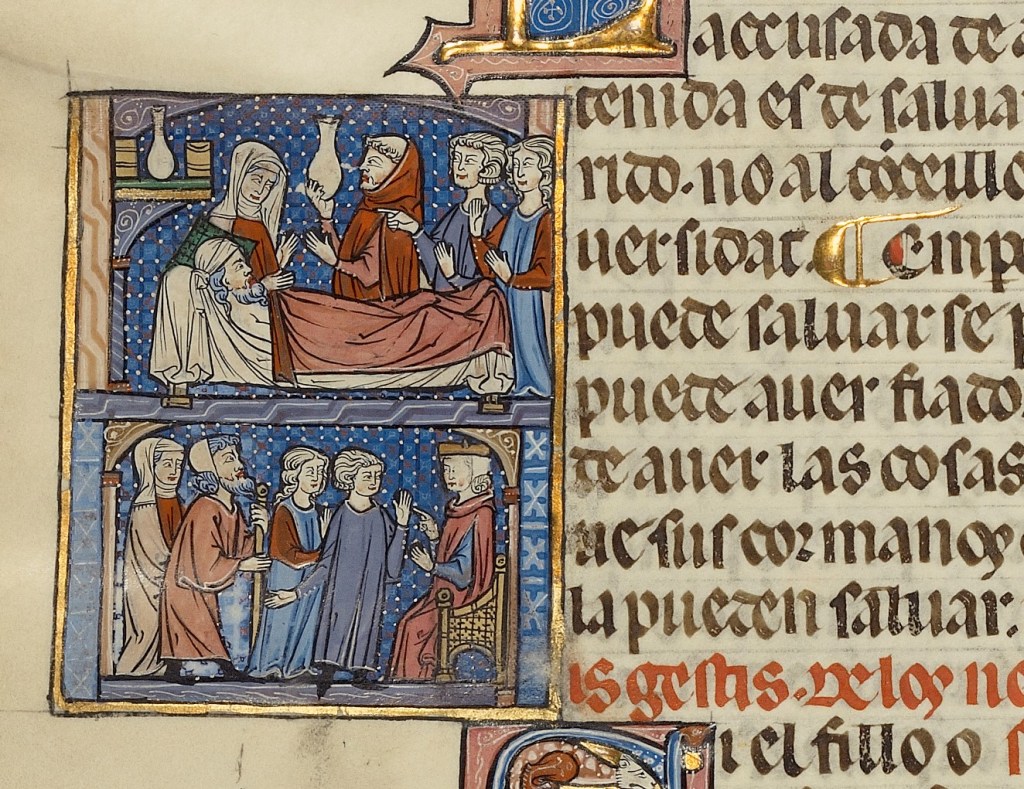 accusada de a
tenida es de salua
rido. no al
uersidat. ¶ Emp
puede saluar se p
puede auer fiado
de auer las cosas
ue sus cormanos
la pueden saluar.
is gestis. de los ne
i el fillo o